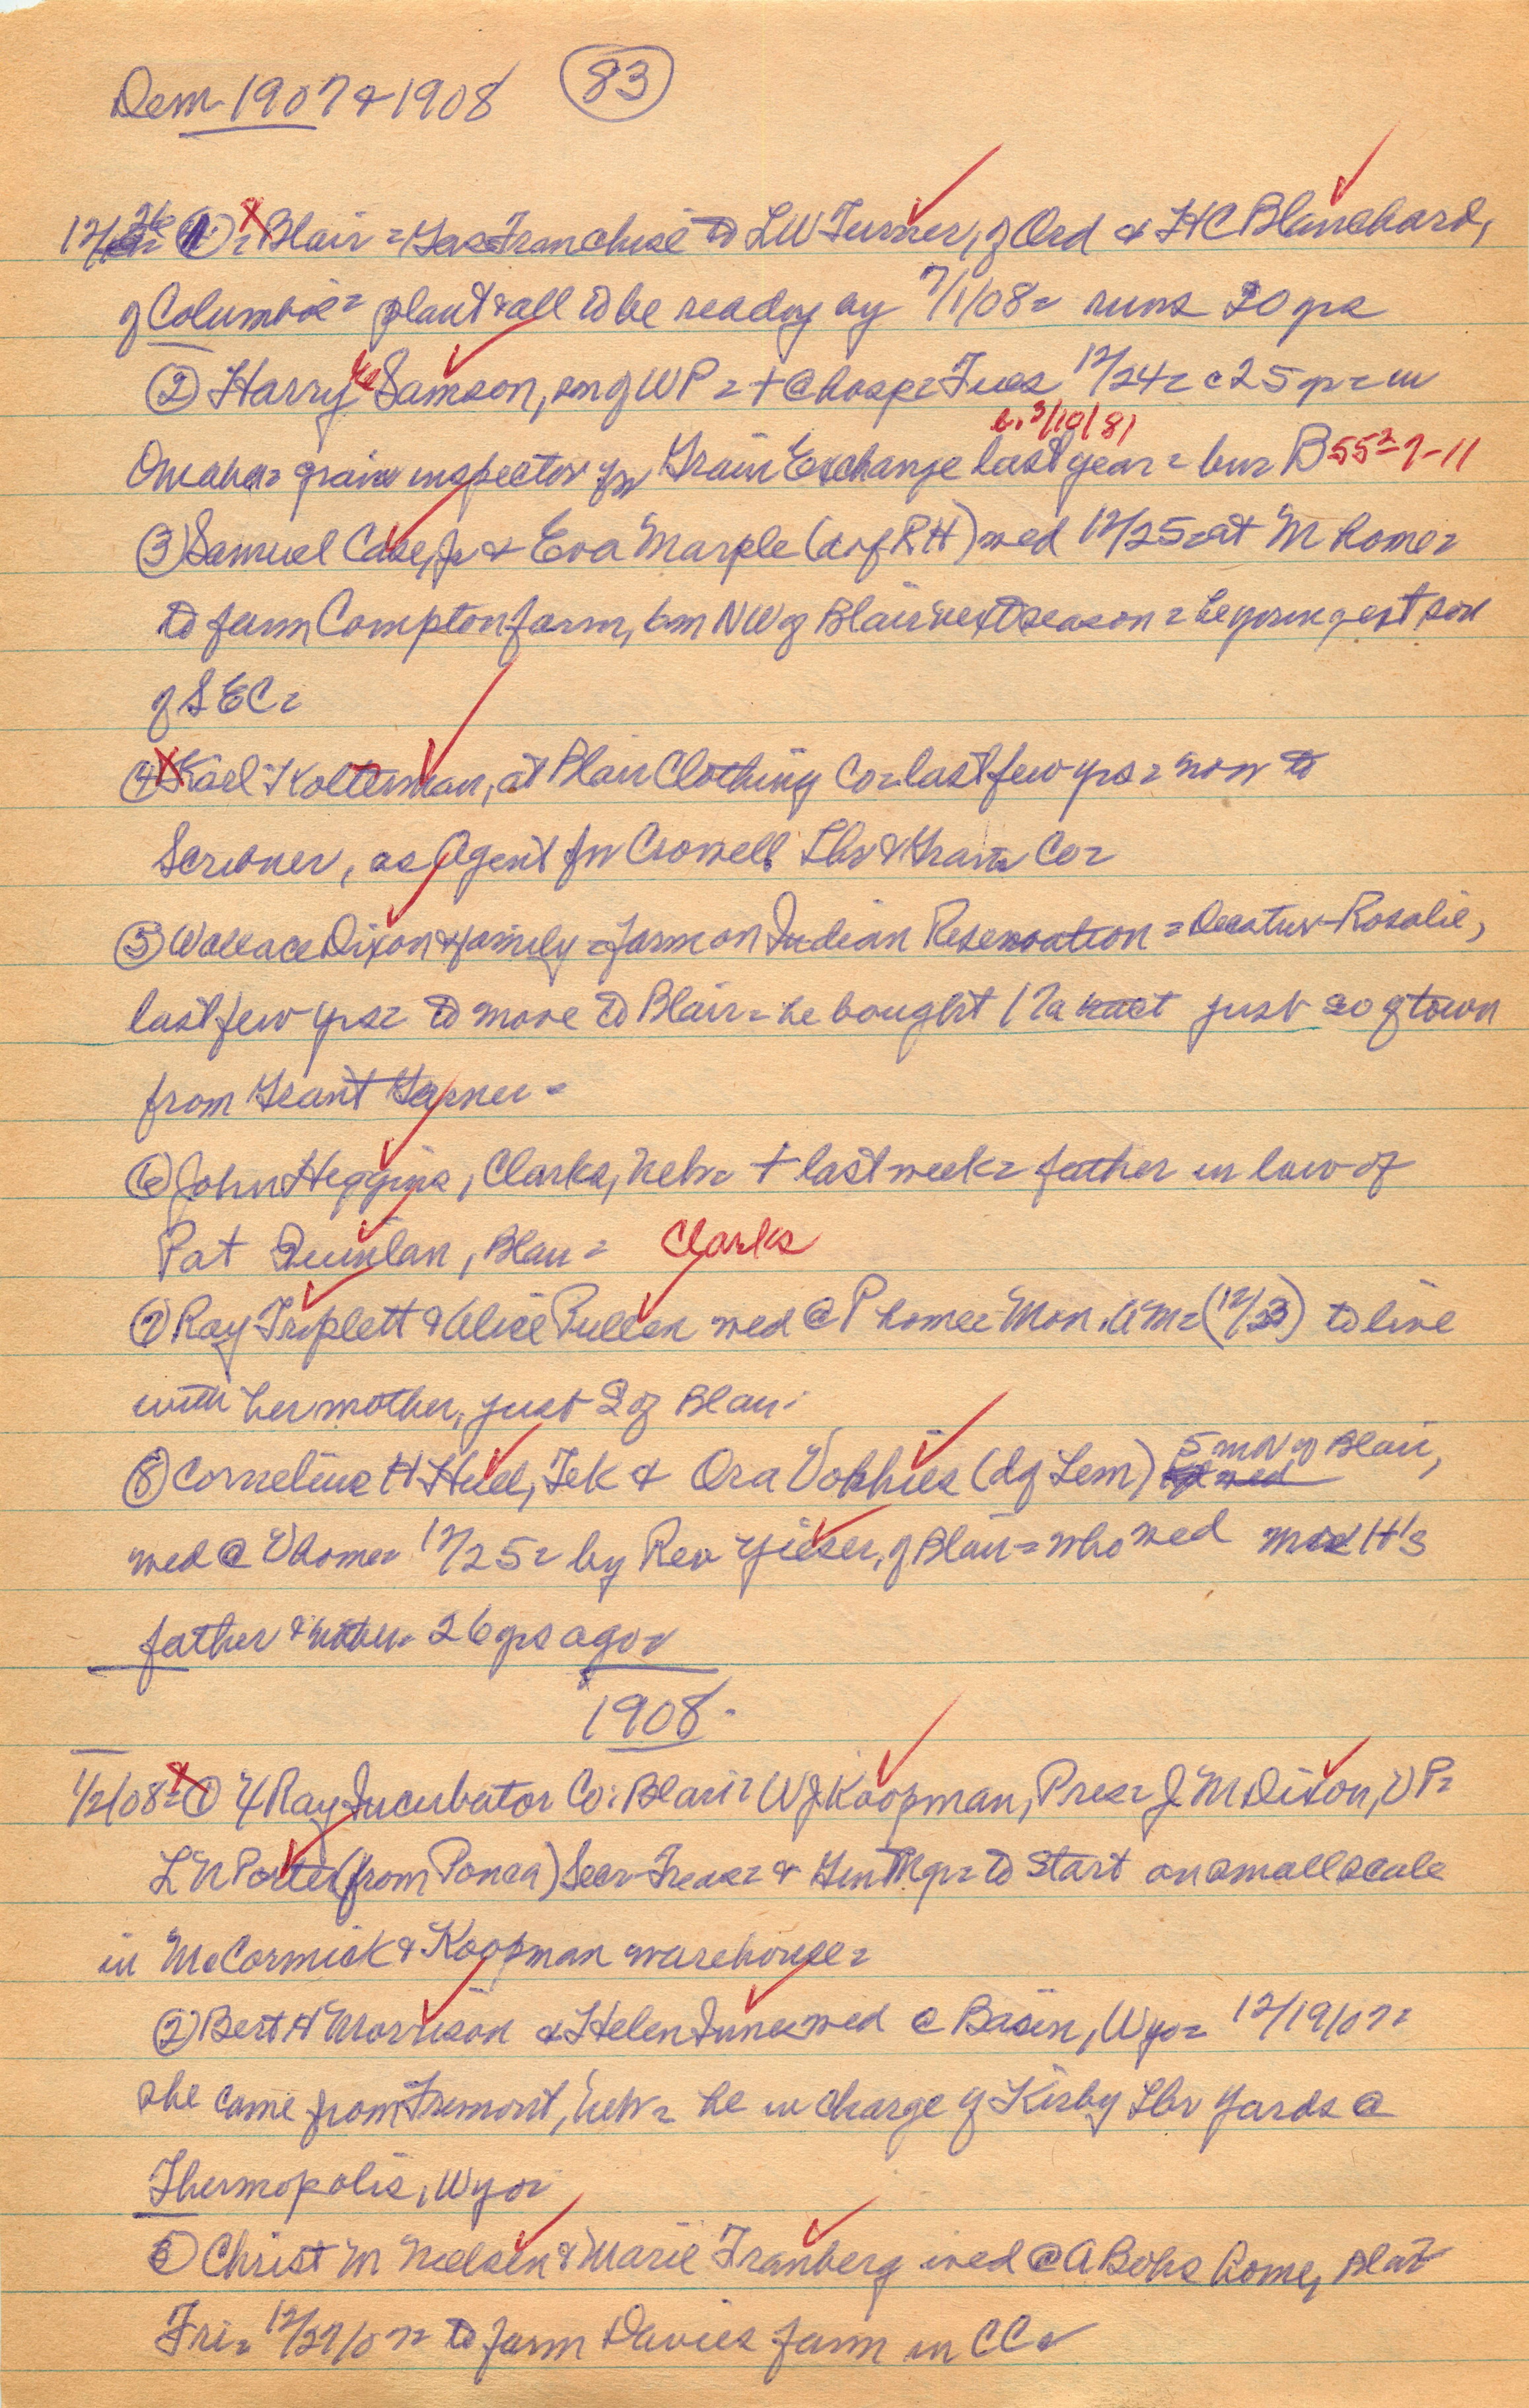 Dem 1907 & 1908 83
12/26 = ① = Blair = Gas Franchise to LW Turner, of Ord & HC Blanchard,
of Columbus = plant & all to be ready by 7/1/08 = runs 20 yrs
② Harry Samson, son of WP = + @ hosp = Tues 12/24 = c 25 yr = in
b. 3/10/81
Omaha = grain inspector for Grain Exchange last year = bur B 55²-7-11
③ Samuel Case, Jr & Eva Marple (d of RH) wed 12/25 = at M home =
to farm Compton farm, 6m NW of Blair next season = he youngest son
of SEC =
④ Karl Kolterman, at Blair Clothing Co = last few yrs = now to
Scribner, as Agent for Crowell Lbr & Grain Co =
⑤ Wallace Dixon & family = farm on Indian Reservation = Decatur-Rosalie,
last few yrs = to move to Blair = he bought 17a tract just so of town
from Grant =
⑥ John Heggins, Clarks, Nebr = + last week = father in law of
Pat Quinlan, Blair = Clarks
⑦ Ray Triplett & Alice Pullen wed @ P home = Mon. AM = (12/23) to live
with her mother, just S of Blair.
⑧ Cornelius H Hull, Tek & Ora Vohhies (d of Lem) 5 m N of Blair,
wed @ V home = 12/25 = by Rev Yieser, of Blair = who wed H's
father & mother = 26 yrs ago =
1908.
1/2/08 = ① X Ray Incubator Co: Blair = WJ Koopman, Pres = J M Dixon, VP =
L N Porter (from Ponca) Secr-Treas = & Gen Mgr = to start on small scale
in McCormick & Koopman warehouse =
② Bert H Morrison & Helen wed @ Basin, Wyo = 12/19/07 =
she came from Fremont, Neb = he in charge of Kirby Lbr Yards @
Thermopolis, Wyo =
③ Christ M Nielsen & Marie Tranberg wed @ A Bohs home, Blair
Fri = 12/27/07 = to farm Davies farm in CC =